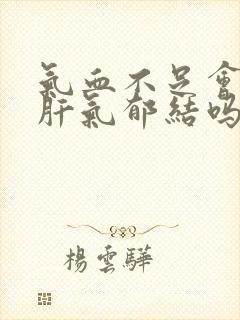 氣血不足會
肝氣郁結嗎
楊雲驊